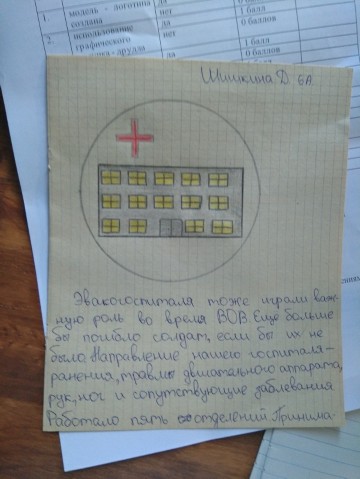 1.
модель - логотипа
создана
да
нет
1 балл
0 баллов
2.
использование
графического
да
нет
1 балл
0 баллов
Шишкина.Д 6А
Эвакогоспиталя тоже играли важ-
ную роль во время ВОВ. Ещё больше
бы погибло солдат, если бы их не
было. Направление нашего госпиталя-
ранения, травмы двигательного аппарата,
рук, ног и сопутствующие заблевания.
Работало пять отделений. Принима-